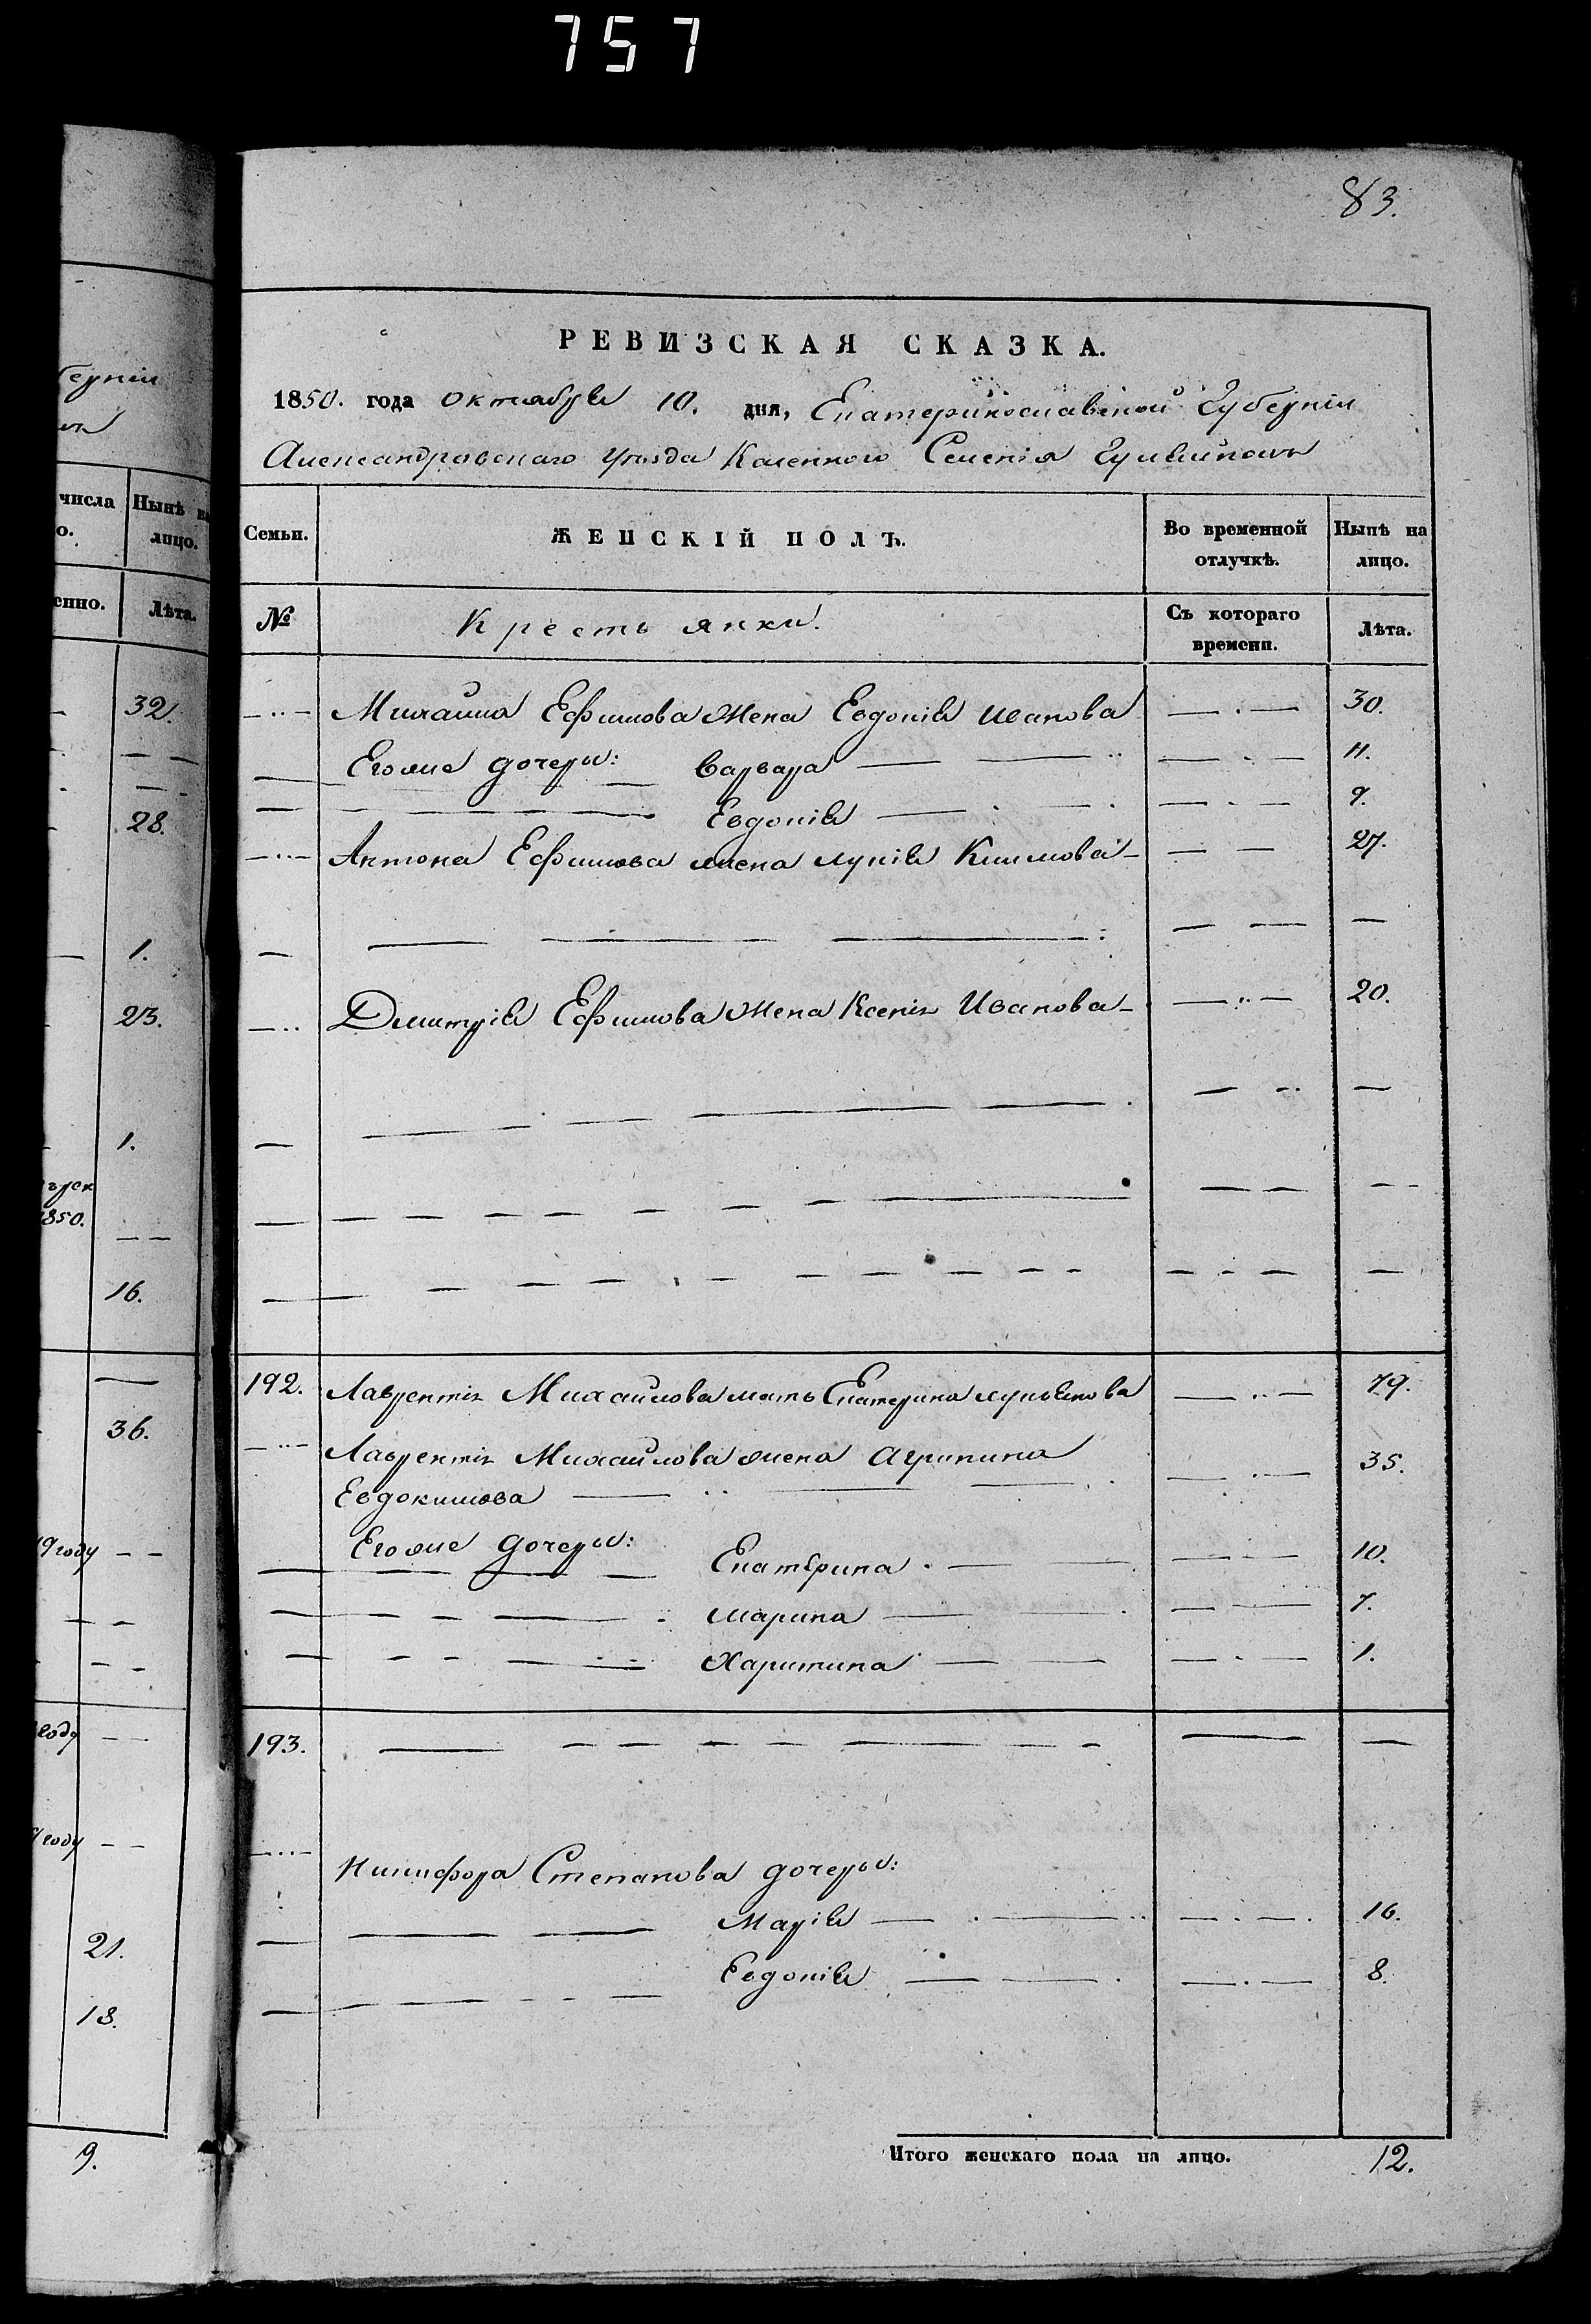 757
83.
РЕВИЗСКАЯ СКАЗКА.
1850. года октября 10. дня, Екатеринославской Губерніи
Александровскаго Уѣзда Казенного Селенія
Семьи. ЖЕНСКІЙ ПОЛЪ. Во временной отлучкѣ. Нынѣ на лицо.
№ Крестьянки. Съ котораго времени. Лѣта.
Михайла Ефимова Жена Евдокія Иванова 30.
Егоже дочери: Варвара 11.
Евдокія 9.
Антона Ефимова жена Лукія Климова 27.
Дмитрія Ефимова Жена Ксенія Иванова 20.
192. Лаврентія Михайлова мать Екатерина Лукьянова 79.
Лаврентія Михайлова жена Агрипина 35.
Евдокимова
Егоже дочери: Екатерина 10.
Марина 7.
Харитина 1.
193.
Никифора Степанова дочери:
Марія 16.
Евдокія 8.
Итого женскаго пола на лицо. 12.
числа Нынѣ на
лицо.
Лѣта.
32.
28.
1.
23.
1.
850.
16.
36.
году
году
году
21.
18.
9.